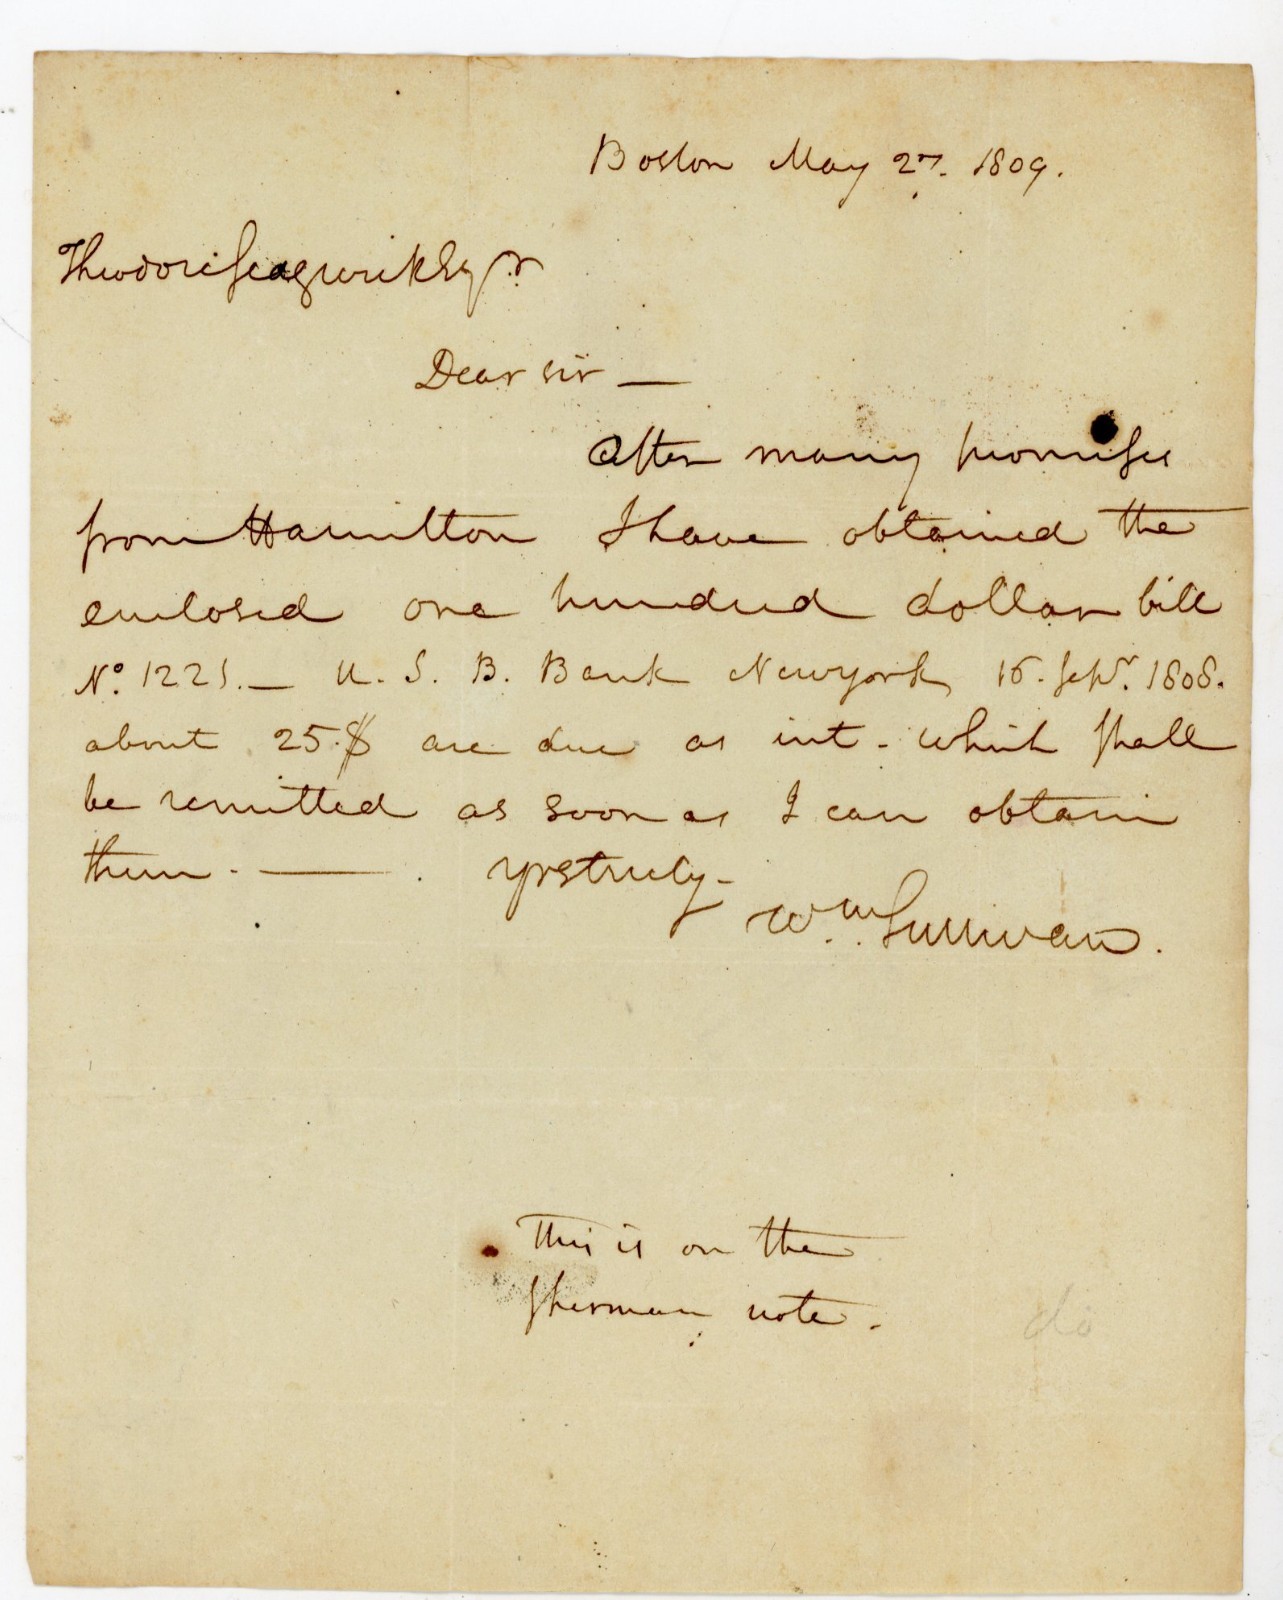 Boston May 27. 1809.
Theodore Sedgwick Esqr
Dear sir —
After many promises
from Hamilton I have obtained the
enclosed one hundred dollar bill
No. 1221. — U. S. B. Bank Newyork 16. Sepr. 1808.
about 25 $ are due as int. which shall
be remitted as soon as I can obtain
them. — . yrs truly -
Wm Sullivan.
This is on the
Sherman note.
do